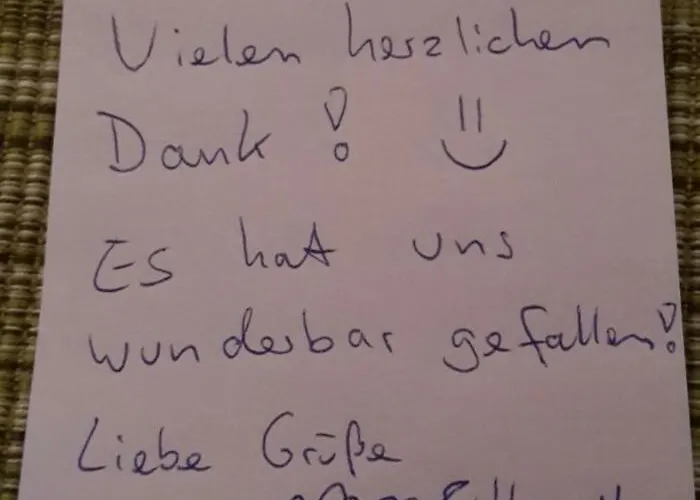 Vielen herzlichen
Dank! =)
Es hat uns
wunderbar gefallen!
Liebe Grüße